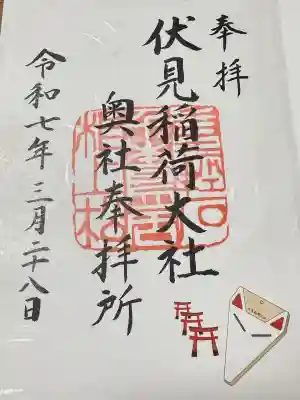 奉拝
伏見稲荷大社
奥社奉拝所
令和七年三月二十八日